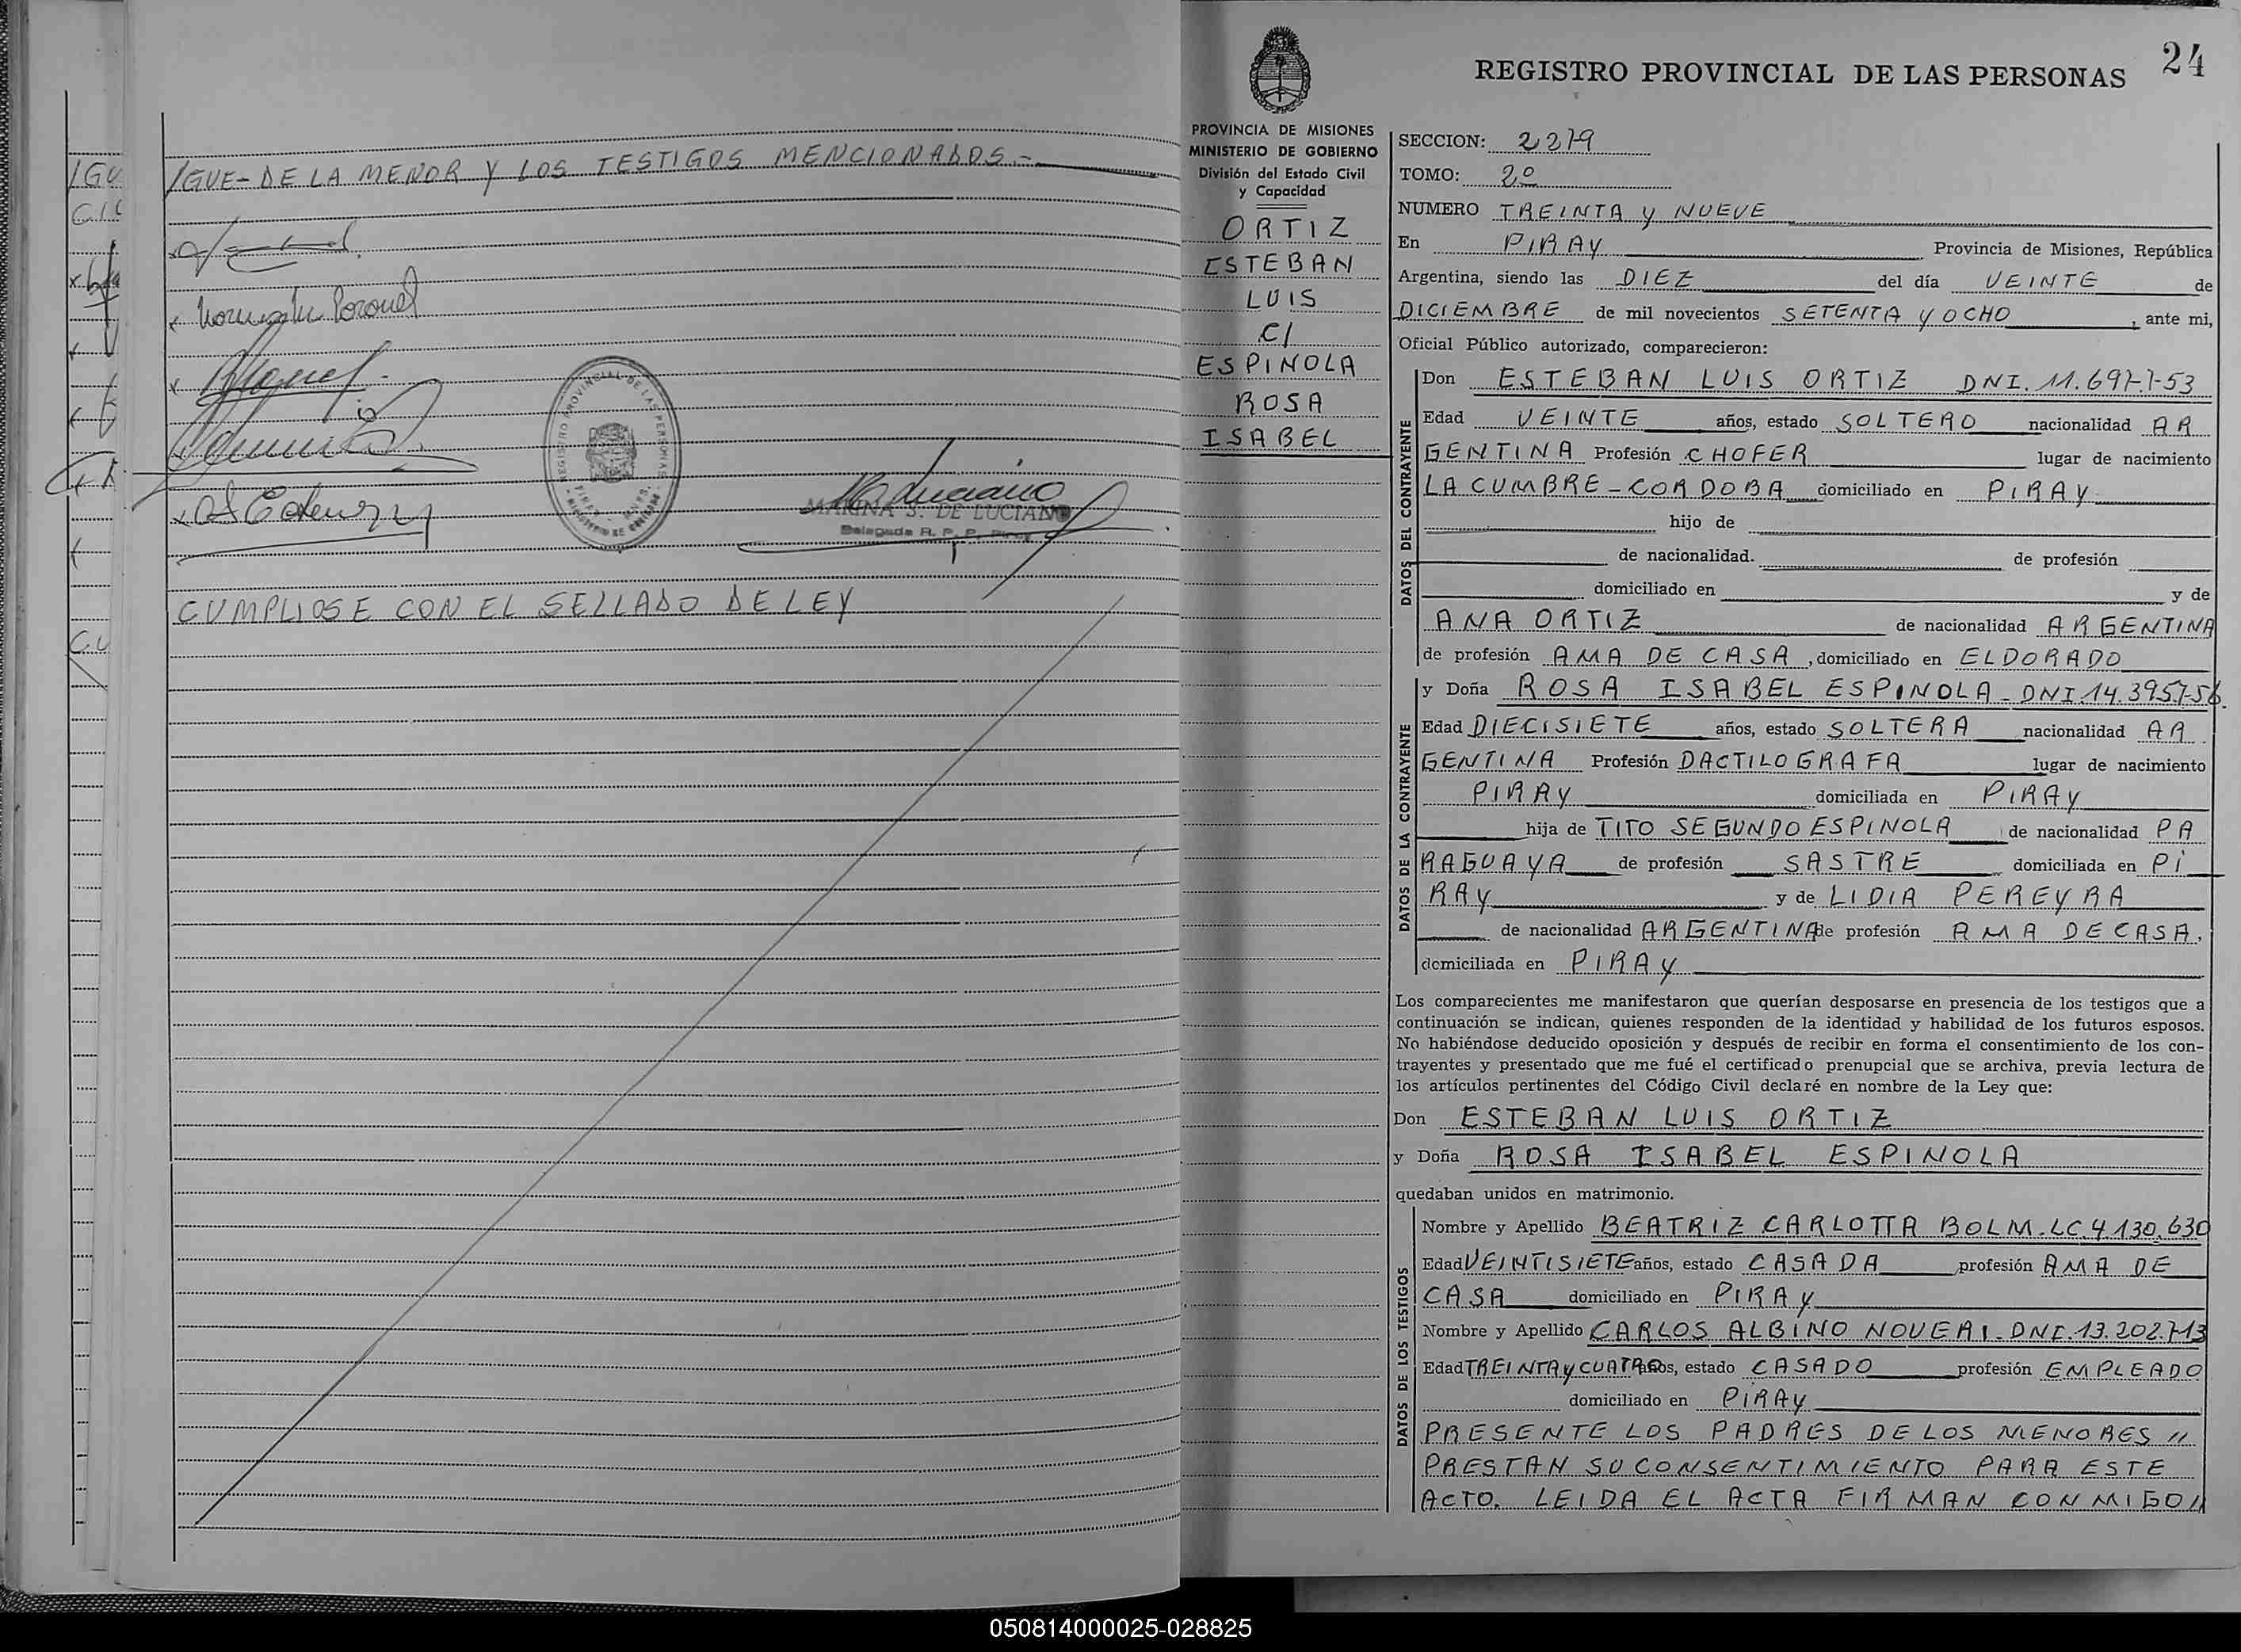 /GUE-DE LA MENOR Y LOS TESTIGOS MENCIONADOS.-
MARINA S. DE LUCIANO
Delegada R. P. P. Piray
CUMPLIOSE CON EL SELLADO DE LEY
24
REGISTRO PROVINCIAL DE LAS PERSONAS
PROVINCIA DE MISIONES
MINISTERIO DE GOBIERNO
División del Estado Civil
y Capacidad
ORTIZ
ESTEBAN
LUIS
C/
ESPINOLA
ROSA
ISABEL
SECCION: 2279
TOMO: 2º
NUMERO TREINTA Y NUEVE
En PIRAY Provincia de Misiones, República
Argentina, siendo las DIEZ del día VEINTE de
DICIEMBRE de mil novecientos SETENTA Y OCHO, ante mi,
Oficial Público autorizado, comparecieron:
DATOS DEL CONTRAYENTE
Don ESTEBAN LUIS ORTIZ DNI. 11.697-753
Edad VEINTE años, estado SOLTERO nacionalidad AR
GENTINA Profesión CHOFER lugar de nacimiento
LA CUMBRE-CORDOBA domiciliado en PIRAY
hijo de
de nacionalidad. de profesión
domiciliado en y de
ANA ORTIZ de nacionalidad ARGENTINA
de profesión AMA DE CASA, domiciliado en ELDORADO
DATOS DE LA CONTRAYENTE
y Doña ROSA ISABEL ESPINOLA-DNI.14.395.756.
Edad DIECISIETE años, estado SOLTERA nacionalidad AR
GENTINA Profesión DACTILOGRAFA lugar de nacimiento
PIRAY domiciliada en PIRAY
hija de TITO SEGUNDO ESPINOLA de nacionalidad PA
RAGUAYA de profesión SASTRE domiciliada en PI
RAY y de LIDIA PEREYRA
de nacionalidad ARGENTINA de profesión AMA DE CASA,
domiciliada en PIRAY
Los comparecientes me manifestaron que querían desposarse en presencia de los testigos que a
continuación se indican, quienes responden de la identidad y habilidad de los futuros esposos.
No habiéndose deducido oposición y después de recibir en forma el consentimiento de los con-
trayentes y presentado que me fué el certificado prenupcial que se archiva, previa lectura de
los artículos pertinentes del Código Civil declaré en nombre de la Ley que:
Don ESTEBAN LUIS ORTIZ
y Doña ROSA ISABEL ESPINOLA
quedaban unidos en matrimonio.
DATOS DE LOS TESTIGOS
Nombre y Apellido BEATRIZ CARLOTTA BOLM.LC.4.130.630
Edad VEINTISIETE años, estado CASADA profesión AMA DE
CASA domiciliado en PIRAY
Nombre y Apellido CARLOS ALBINO NOVERI-DNI.13.202.713
Edad TREINTA Y CUATRO años, estado CASADO profesión EMPLEADO
domiciliado en PIRAY
PRESENTE LOS PADRES DE LOS MENORES //
PRESTAN SU CONSENTIMIENTO PARA ESTE
ACTO. LEIDA EL ACTA FIRMAN CONMIGO //
050814000025-028825